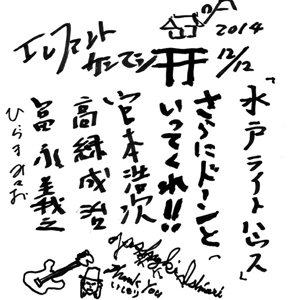 エレファント
カシマシ
2014
12/12
「水戸ライトハウス」
さらにドーンと
いってくれ!!
宮本浩次
高緑成治
冨永義之
Thank You